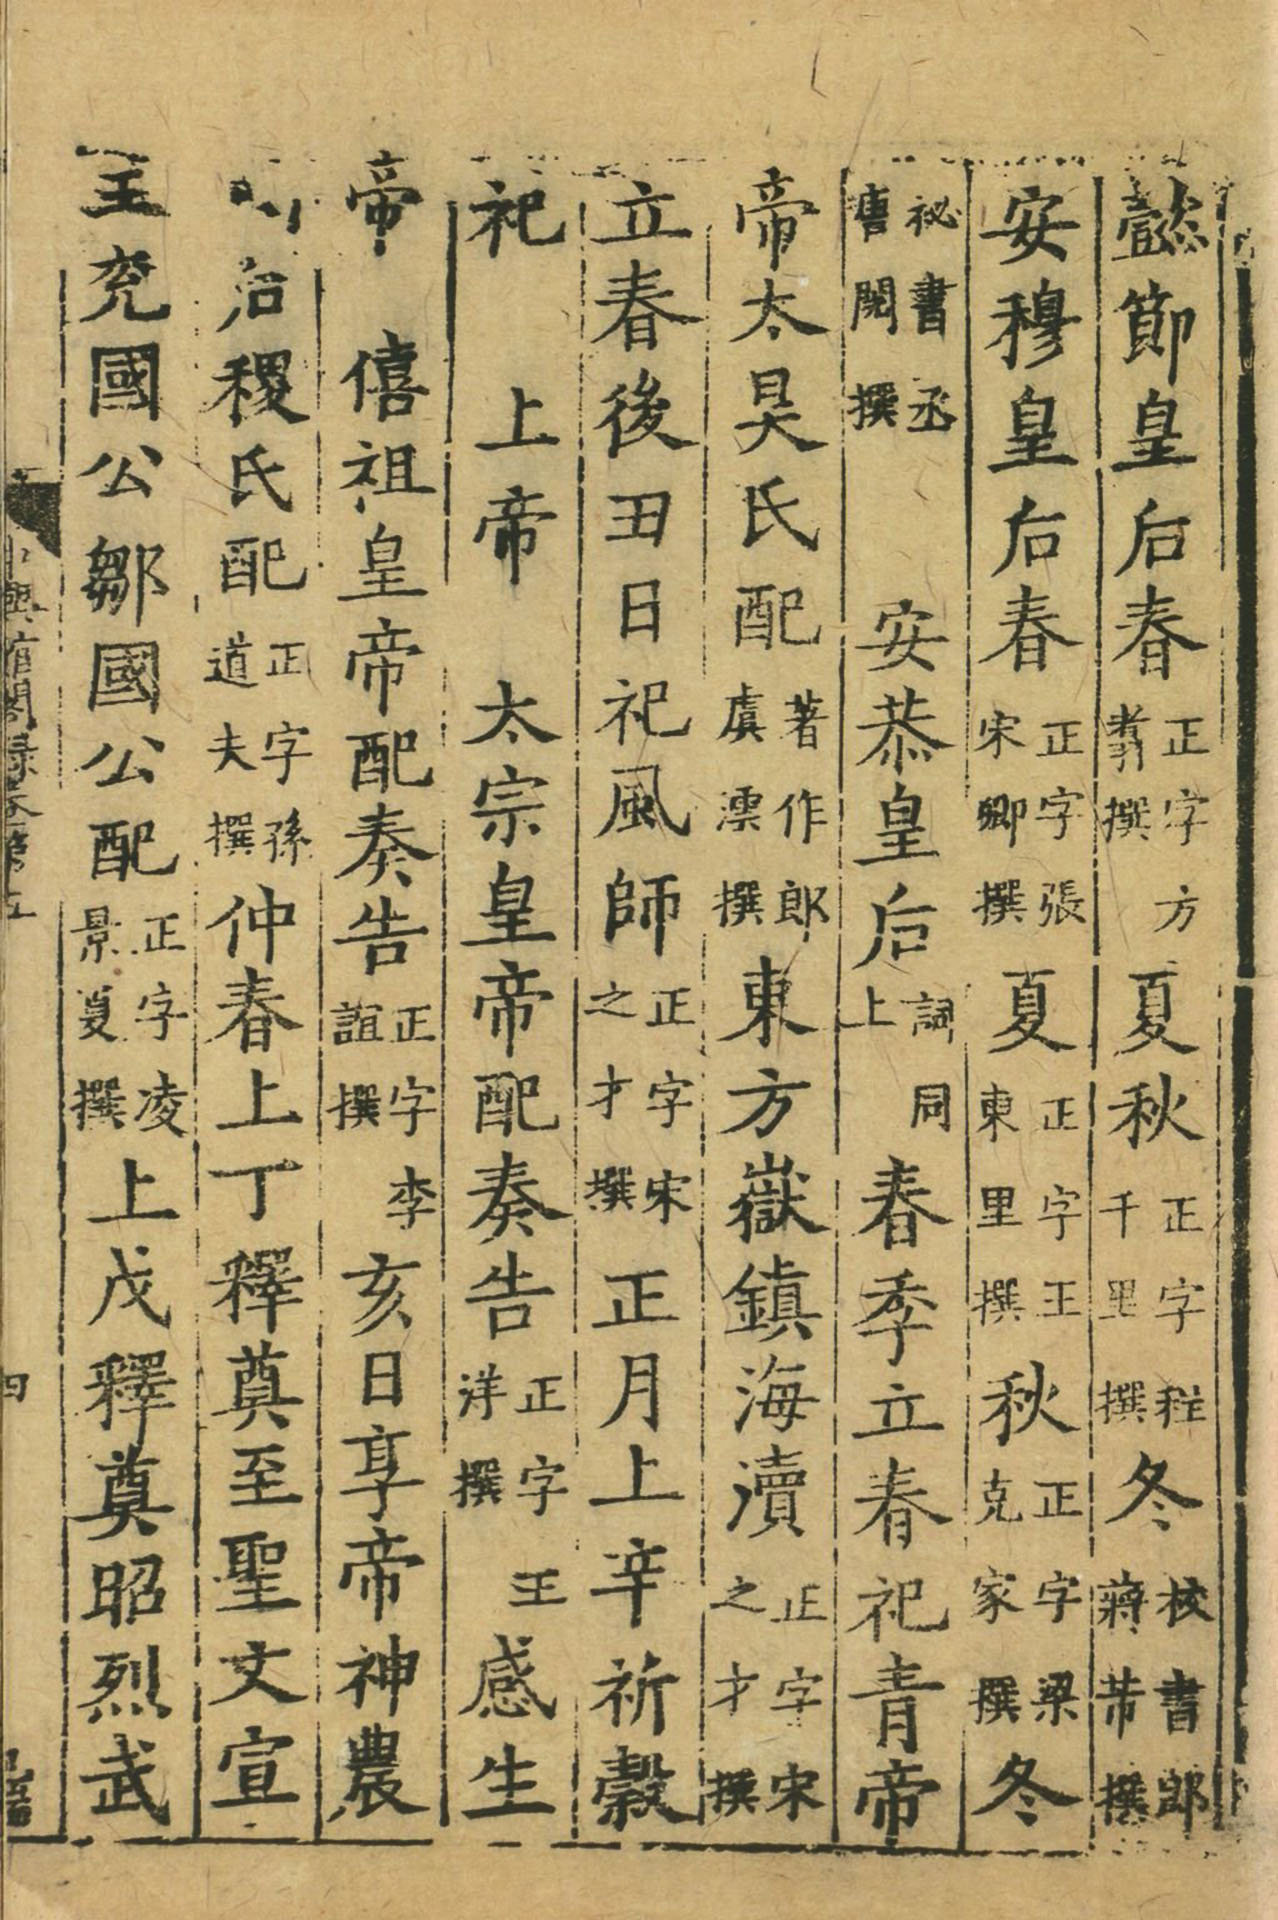 懿節皇后春正字方翥撰夏秋正字程千里撰冬校書郎蔣芾撰
安穆皇后春正字張宋卿撰夏正字王東里撰秋正字梁克家撰冬
祕書丞唐閱撰安恭皇后詞同上春季立春祀青帝
帝太昊氏配著作郎虞澐撰東方嶽鎮海瀆正字宋之才撰
立春後丑日祀風師正字宋之才撰正月上辛祈穀
祀上帝太宗皇帝配奏告正字王洋撰感生
帝僖祖皇帝配奏告正字李誼撰亥日享帝神農
后稷氏配正字孫道夫撰仲春上丁釋奠至聖文宣
王兗國公鄒國公配正字凌景夏撰上戊釋奠昭烈武
中興館閣錄卷第五
四